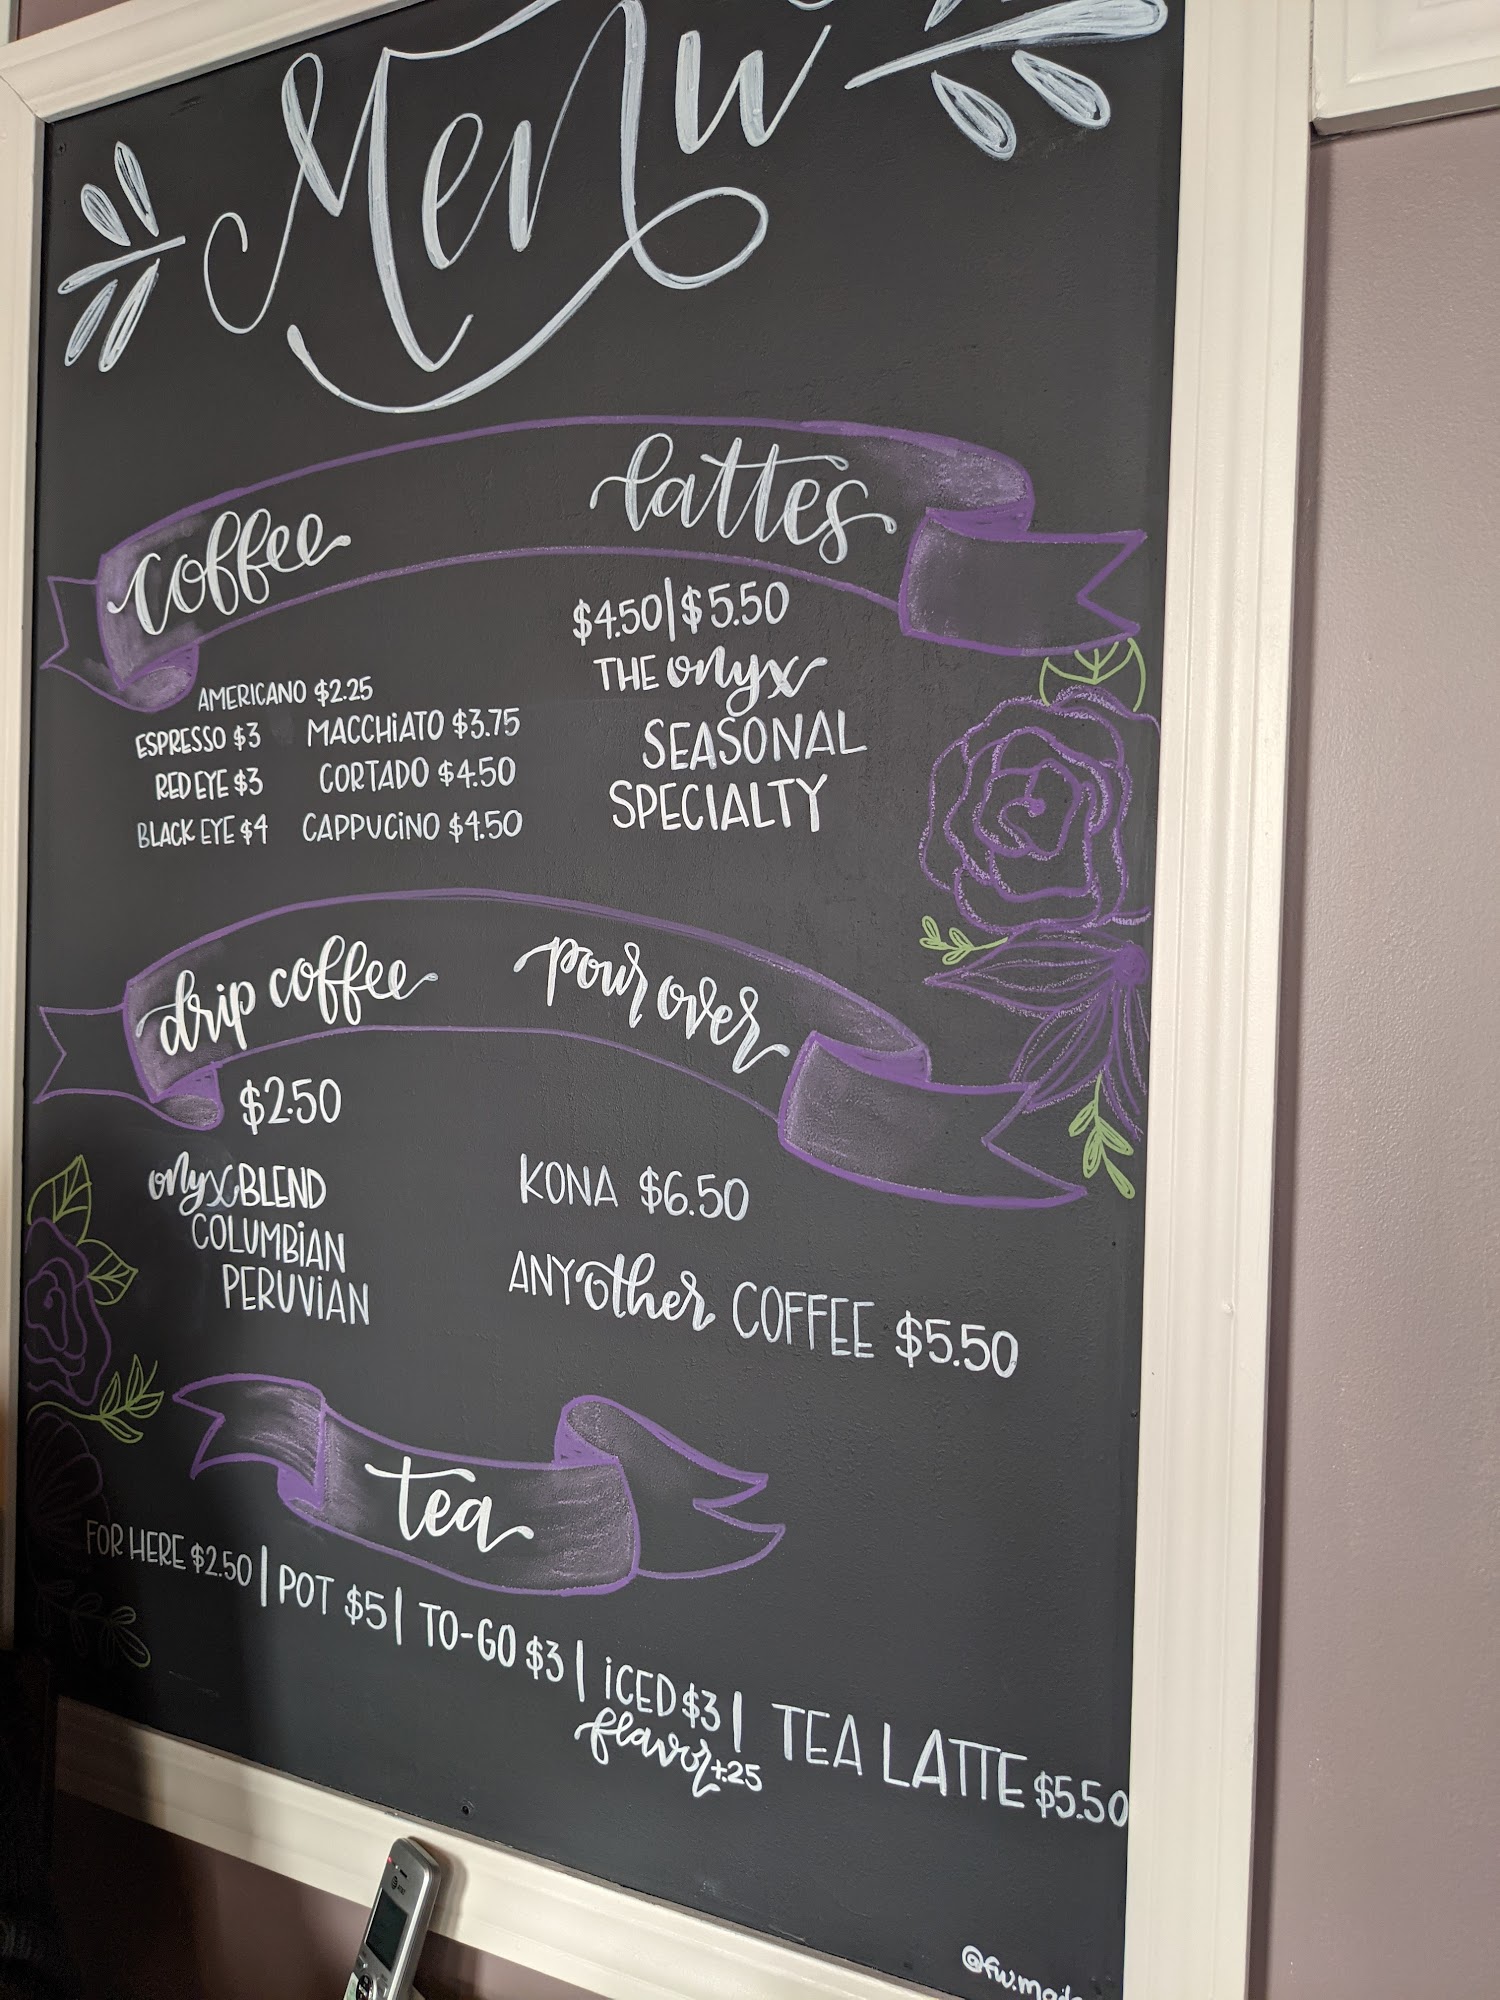 Menu
coffee
lattes
AMERICANO $2.25
ESPRESSO $3
MACCHIATO $3.75
RED EYE $3
CORTADO $4.50
BLACK EYE $4
CAPPUCINO $4.50
$4.50|$5.50
THE onyx
SEASONAL
SPECIALTY
drip coffee
pour over
$2.50
onyx BLEND
COLUMBIAN
PERUVIAN
KONA $6.50
ANY other COFFEE $5.50
tea
FOR HERE $2.50 | POT $5 | TO-GO $3 | ICED $3 | TEA LATTE $5.50
flavor +.25
AT&T